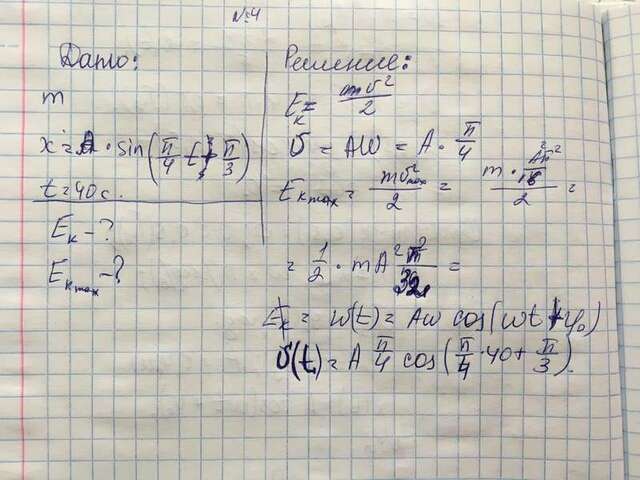 №4
Дано:
m
x = A · sin(π/4 t + π/3)
t = 40 с.
Eк - ?
Eк max - ?
Решение:
Eк = mv²/2
v = Aw = A · π/4
Eк max = mv²max/2 = m · A²π²/16/2 =
= 1/2 · mA² π²/ =
Eк = w(t) = Aw cos(wt + φ₀)
v(t) = A π/4 cos(π/4 · 40 + π/3).